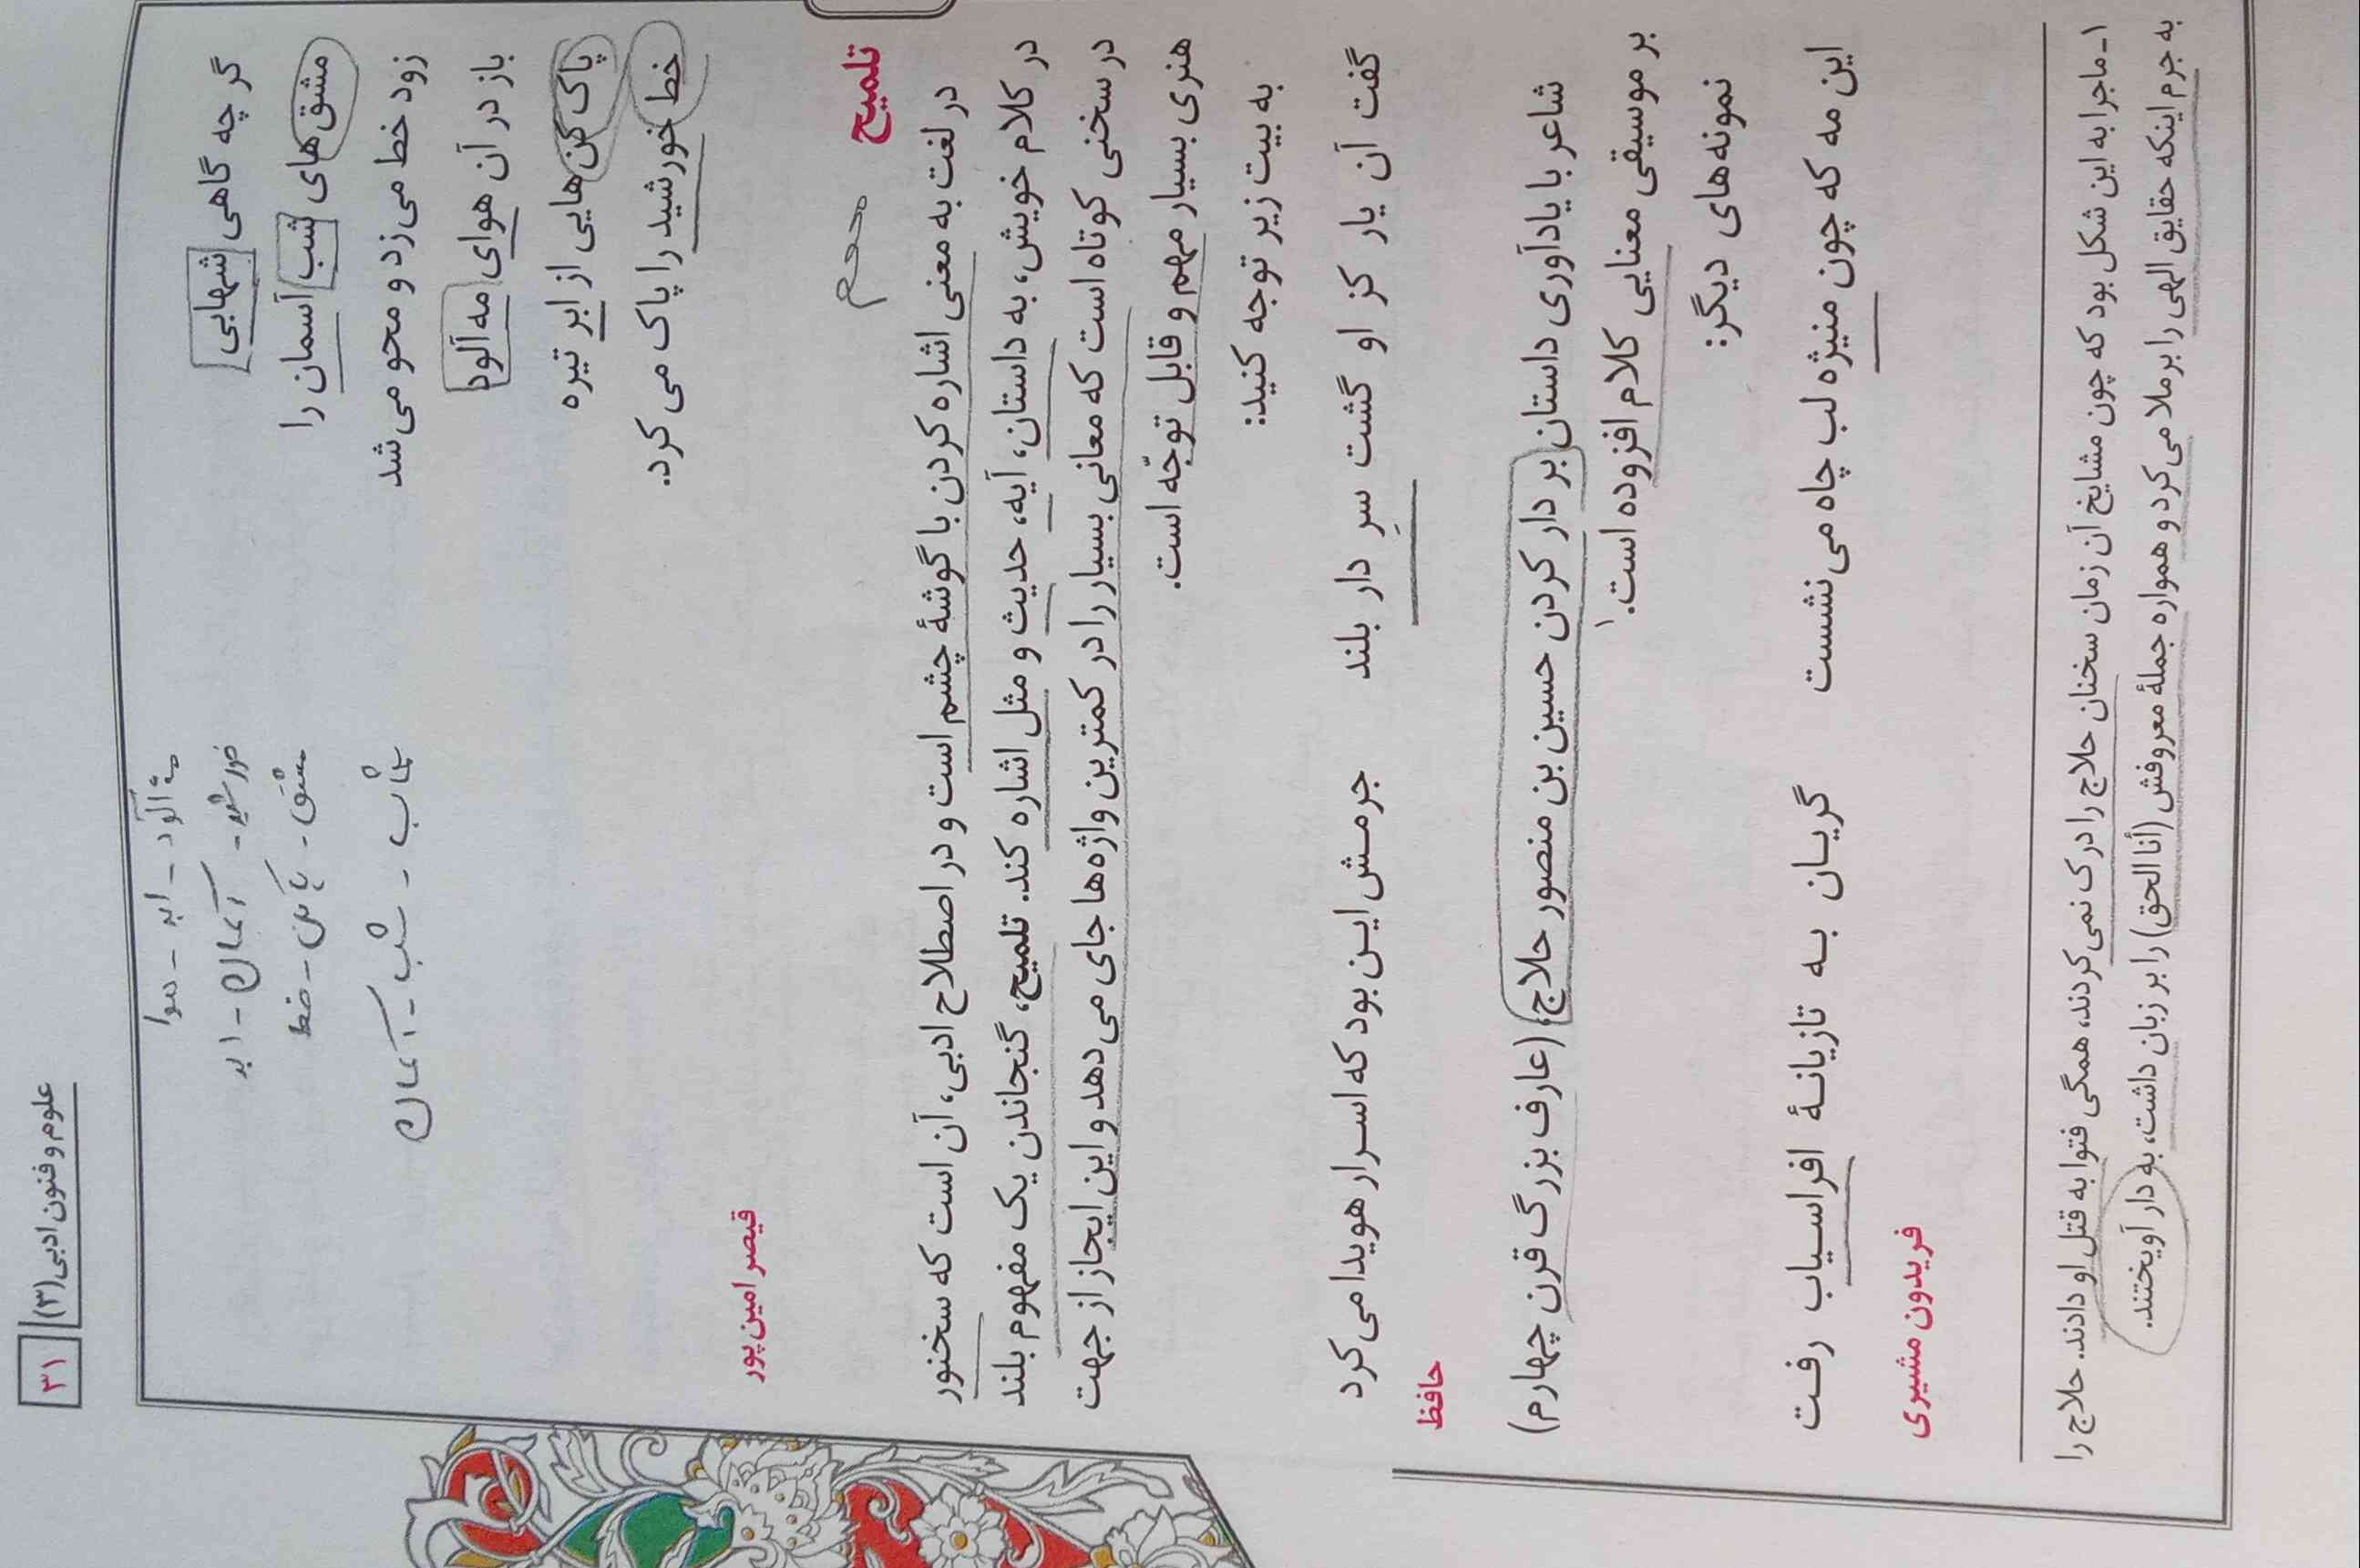 علوم و فنون ادبی (۳) ۳۱
گر چه گاهی شهابی
مشق‌های شب آسمان را
زود خط می‌زد و محو می‌شد
باز در آن هوای مه‌آلود
پاک‌کن‌هایی از ابر تیره
خط خورشید را پاک می‌کرد.
قیصر امین‌پور
مه آلود - ابر - هوا
خورشید - آسمان - ابر
مشق - پاک‌کن - خط
شهاب - شب - آسمان
تلمیح
مهم
در لغت به معنی اشاره کردن با گوشهٔ چشم است و در اصطلاح ادبی، آن است که سخنور
در کلام خویش، به داستان، آیه، حدیث و مثل اشاره کند. تلمیح، گنجاندن یک مفهوم بلند
در سخنی کوتاه است که معانی بسیار را در کمترین واژه‌ها جای می‌دهد و این ایجاز از جهت
هنری بسیار مهم و قابل توجّه است.
به بیت زیر توجه کنید:
گفت آن یار کز او گشت سرِ دار بلند جرمش این بود که اسرار هویدا می‌کرد
حافظ
شاعر با یادآوری داستان بر دار کردن حسین بن منصور حلاج (عارف بزرگ قرن چهارم)
بر موسیقی معنایی کلام افزوده است.۱
نمونه‌های دیگر:
این مه که چون منیژه لب چاه می‌نشست گریان به تازیانهٔ افراسیاب رفت
فریدون مشیری
۱- ماجرا به این شکل بود که چون مشایخ آن زمان سخنان حلاج را درک نمی‌کردند، همگی فتوا به قتل او دادند. حلاج را
به جرم اینکه حقایق الهی را برملا می‌کرد و همواره جملهٔ معروفش (أنا الحق) را بر زبان داشت، به دار آویختند.